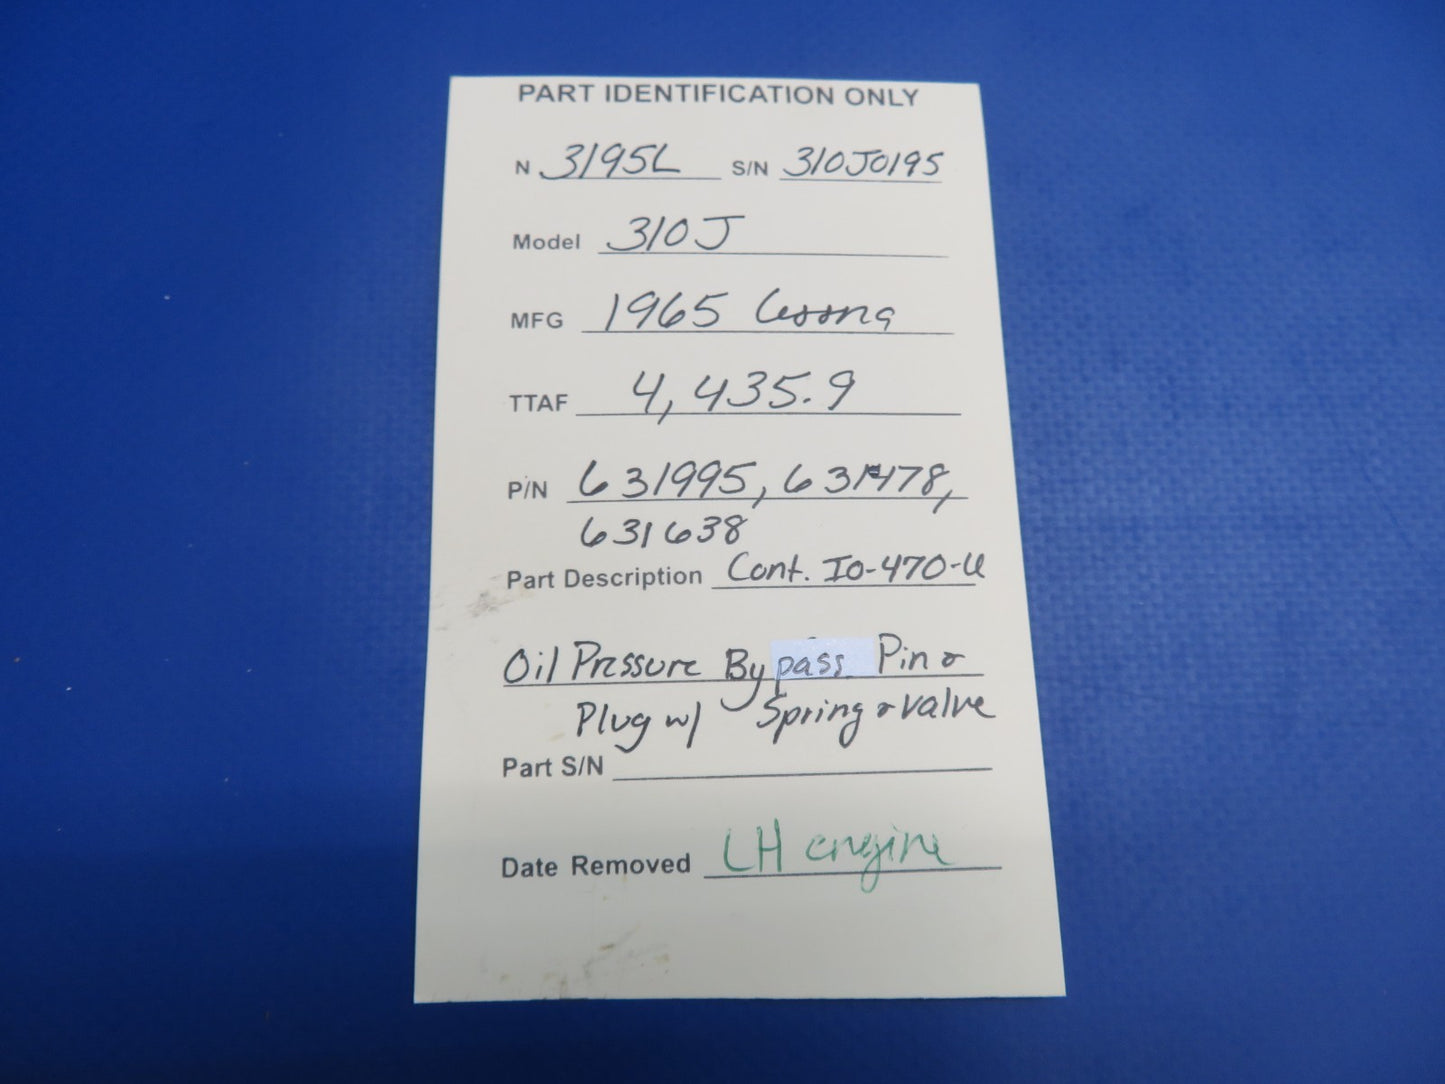 PART IDENTIFICATION ONLY
N 3195L S/N 310J0195
Model 310J
MFG 1965 Cessna
TTAF 4,435.9
P/N 631995, 631478,
631638
Part Description Cont. IO-470-U
Oil Pressure Bypass Pin &
Plug w/ Spring & valve
Part S/N
Date Removed LH engine